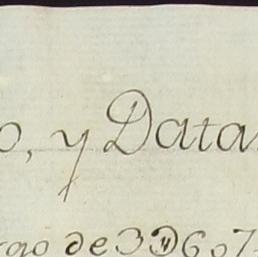 o, y Data
rgo de 3D607